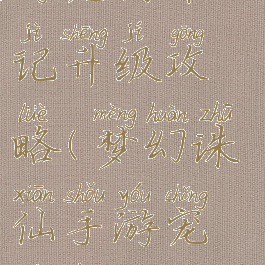 jì shēng jí gōng
记升级攻
lüè mèng huàn zhū
略(梦幻诛
xiān shǒu yóu chǒng
仙手游宠